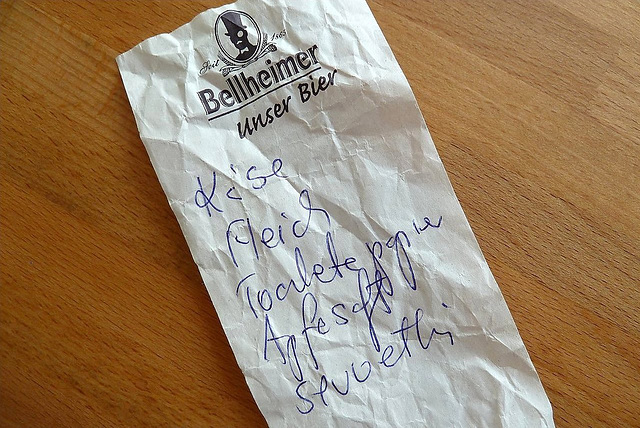 Seit 1865
Bellheimer
Unser Bier
Käse
Fleich
Toalete papier
Apfesaft